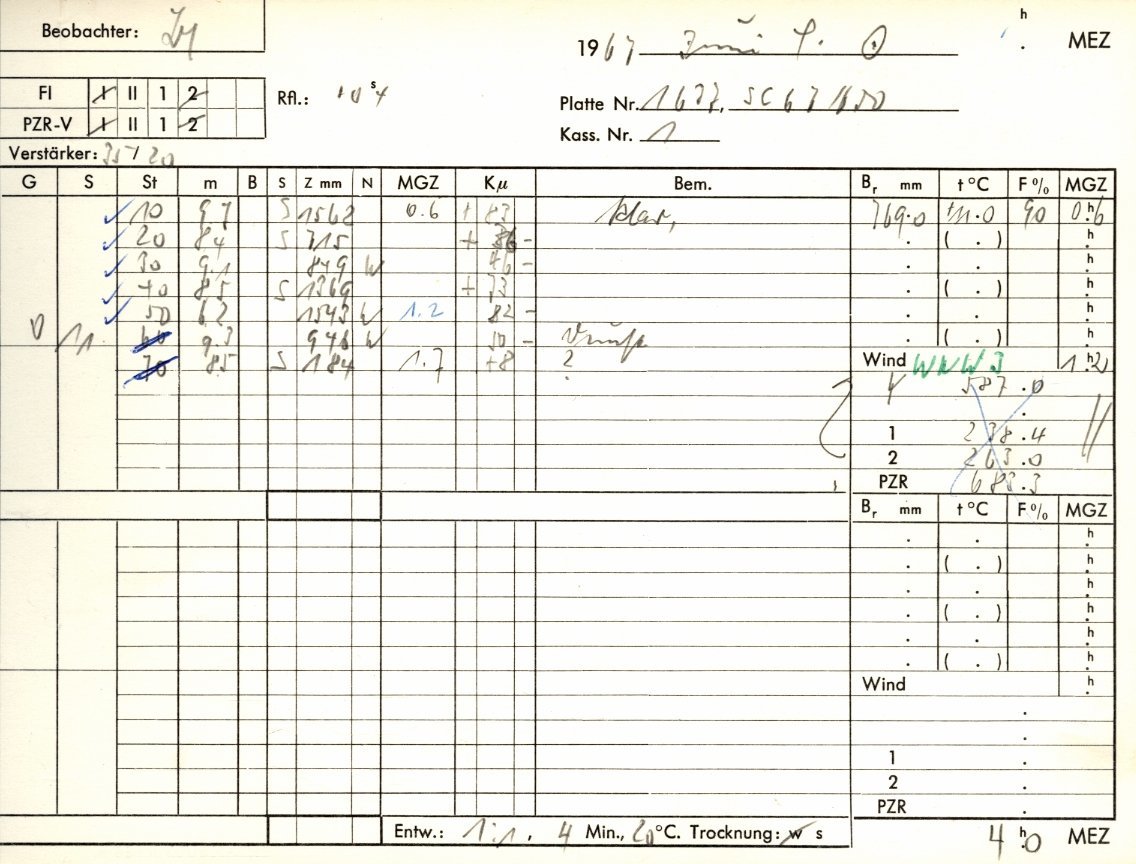 Beobachter:
1967 Juni h . MEZ
FI I II 1 2
Rfl.: s
PZR-V I II 1 2
Platte Nr. 1637,
Kass. Nr. 1
Verstärker: 35 / 20
G S St m B S Z mm N MGZ Kμ Bem. Br mm t °C F % MGZ
10 9.7 S 1562 0.6 + 83 klar, 769.0 +11.0 90 0.h6
20 8.4 S 715 + 86 - . ( . ) h.
30 9.1 849 W 46 - . . h.
40 8.5 S 1369 + 73 . ( . ) h.
50 1543 W 1.2 82 - . . h.
0 11 60 9.3 946 W 50 - . ( . ) h.
70 8.5 S 184 1.7 +8 2 Wind WNW 3 1.h2
587.0
.
1 238.4
2 263.0
PZR 683.3
Br mm t °C F % MGZ
. . h.
. ( . ) h.
. . h.
. ( . ) h.
. . h.
. ( . ) h.
Wind h.
.
.
1 .
2 .
PZR .
Entw.: 1:1, 4 Min., 20 °C. Trocknung: w s 4 h.0 MEZ